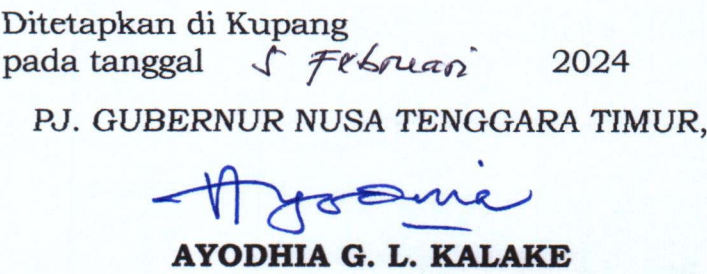 Ditetapkan di Kupang
pada tanggal 5 Februari 2024
PJ. GUBERNUR NUSA TENGGARA TIMUR,
AYODHIA G. L. KALAKE